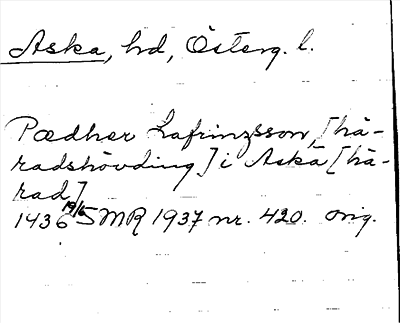 Aska, hd, Österg. l.
Pædher Lafrinzsson, [hä-
radshövding] i Aska [hä-
rad]
1436 19/5 MR 1937 nr. 420. orig.